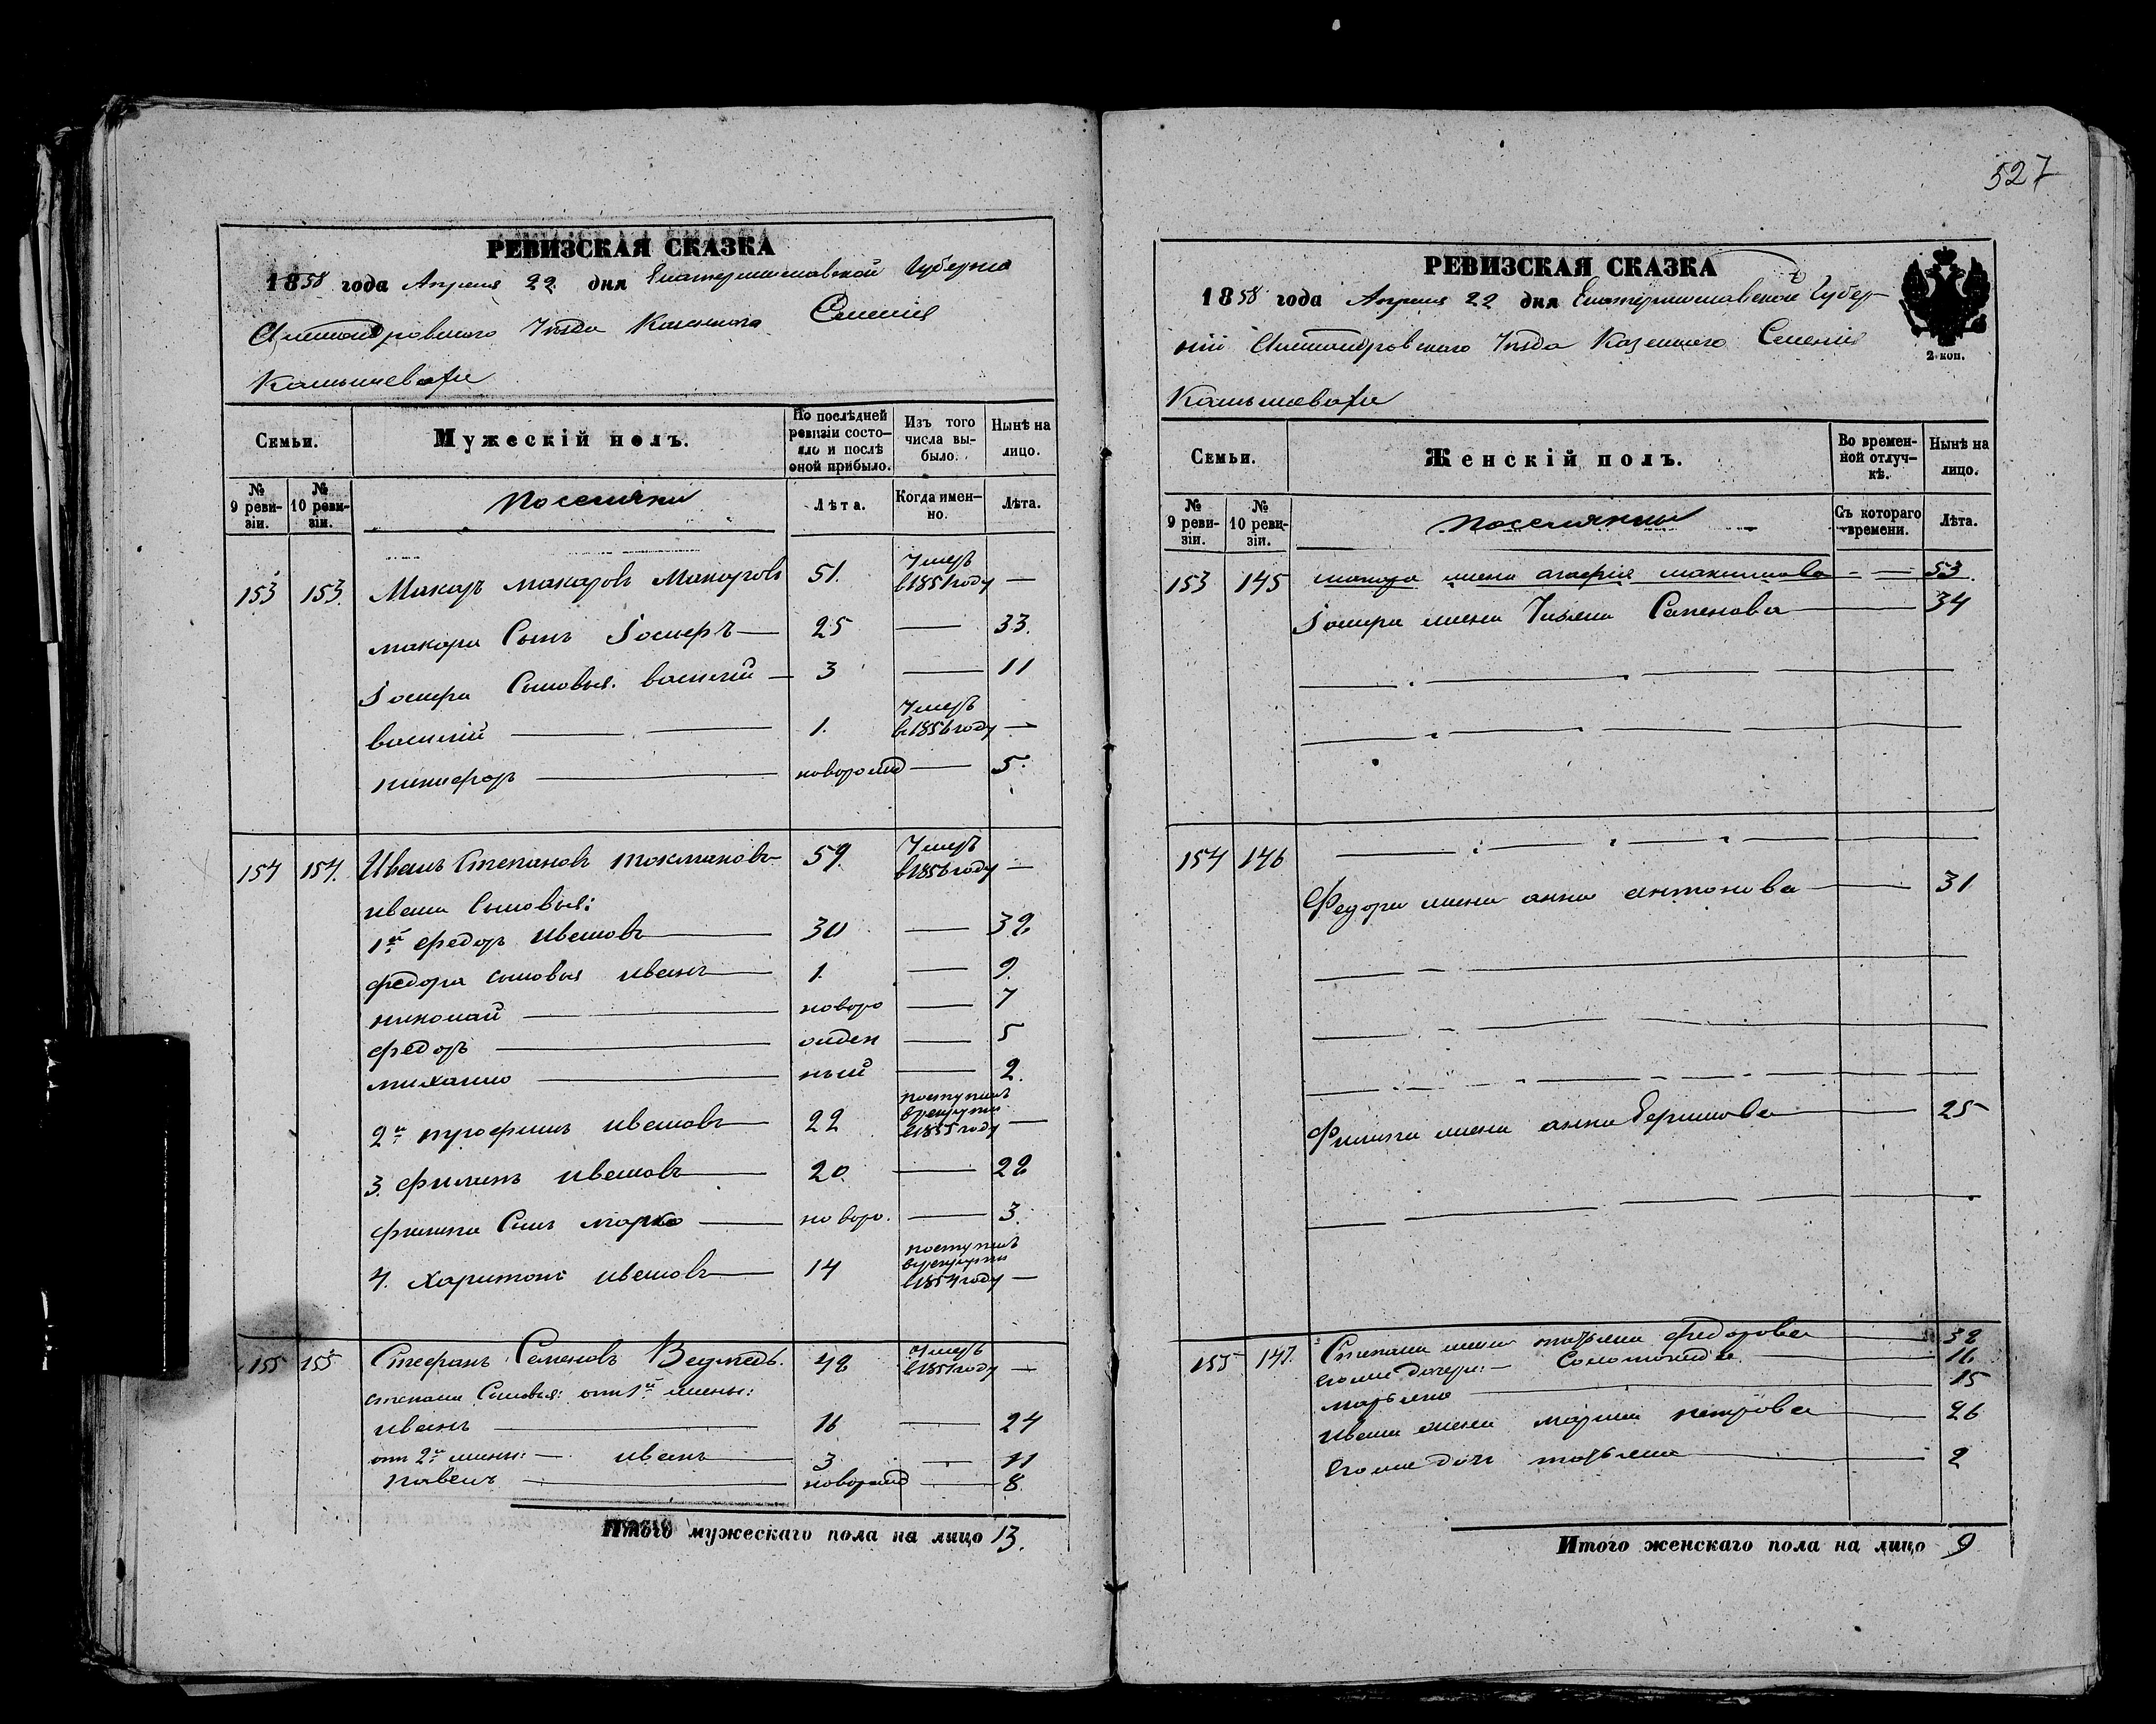 527
РЕВИЗСКАЯ СКАЗКА
1858 года Апреля 22 дня Екатеринославской Губерніи
Александровского Уезда Казенного Селенія
Камышевахи
Семьи.
Мужескій полъ.
По послѣдней ревизіи состояло и послѣ оной прибыло.
Изъ того числа выбыло.
Нынѣ на лицо.
№ 9 ревизіи.
№ 10 ревизіи.
поселяни
Лѣта.
Когда именно.
Лѣта.
153 153. Макаръ макаровъ Макаровъ 51. Умеръ в 1851 году —
макара Сынъ Іосифъ — 25 — 33.
Іосифа Сыновья. василій — 3 — 11
василій — 1. Умеръ в 1856 году —
никифоръ — новорожд — 5.
154 154. Иванъ Степановъ токмаковъ 59. Умеръ в 1856 году —
ивана Сыновья:
1й федоръ ивановъ — 30 — 38
федора сыновья иванъ — 1. — 9.
николай — новоро — 7
федоръ — жден — 5
михаило — ный — 2.
2й трофимъ ивановъ — 22 поступилъ в рекруты в 1855 году —
3. филипъ ивановъ — 20. — 28
филипа Сынъ марко — новоро. — 3.
4. харитонъ ивановъ — 14 поступилъ в рекруты в 1854 году —
155 155 Стефанъ Семеновъ Ведмедь. 48 Умеръ в 1857 году —
степана Сыновья: отъ 1й жены:
иванъ — 16 — 24
отъ 2й жены: — иванъ — 3 — 11
павелъ — новорожд — 8.
Итого мужескаго пола на лицо 13.
РЕВИЗСКАЯ СКАЗКА
1858 года Апреля 22 дня Екатеринославской Губер-
ніи Александровского Уезда Казенного Селенія
2 коп.
Камышевахи
Семьи.
Женскій полъ.
Во временной отлучкѣ.
Нынѣ на лицо.
№ 9 ревизіи.
№ 10 ревизіи.
поселянки
Съ котораго времени.
Лѣта.
153 145 макара жена агафія максимова — 53.
Іосифа жена Ульяна Семенова — 34
154 146
Федора жена анна антонова — 31
Филипа жена анна — 25
155 147. Степана жена татьяна федорова — 38
Его же дочери: — Соломонида — 16.
марьяна — 15
ивана жена марина петрова — 26
Его же дочь татьяна — 2
Итого женскаго пола на лицо 9